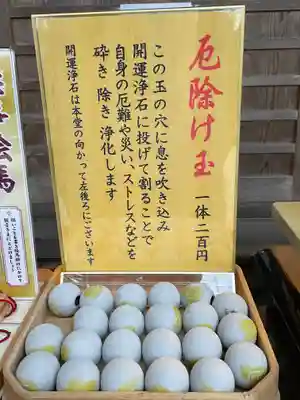 厄除け玉 一体二百円
この玉の穴に息を吹き込み
開運浄石に投げて割ることで
自身の厄難や災い、ストレスなどを
砕き 除き 浄化します
開運浄石は本堂の向かって左後ろにございます
絵馬